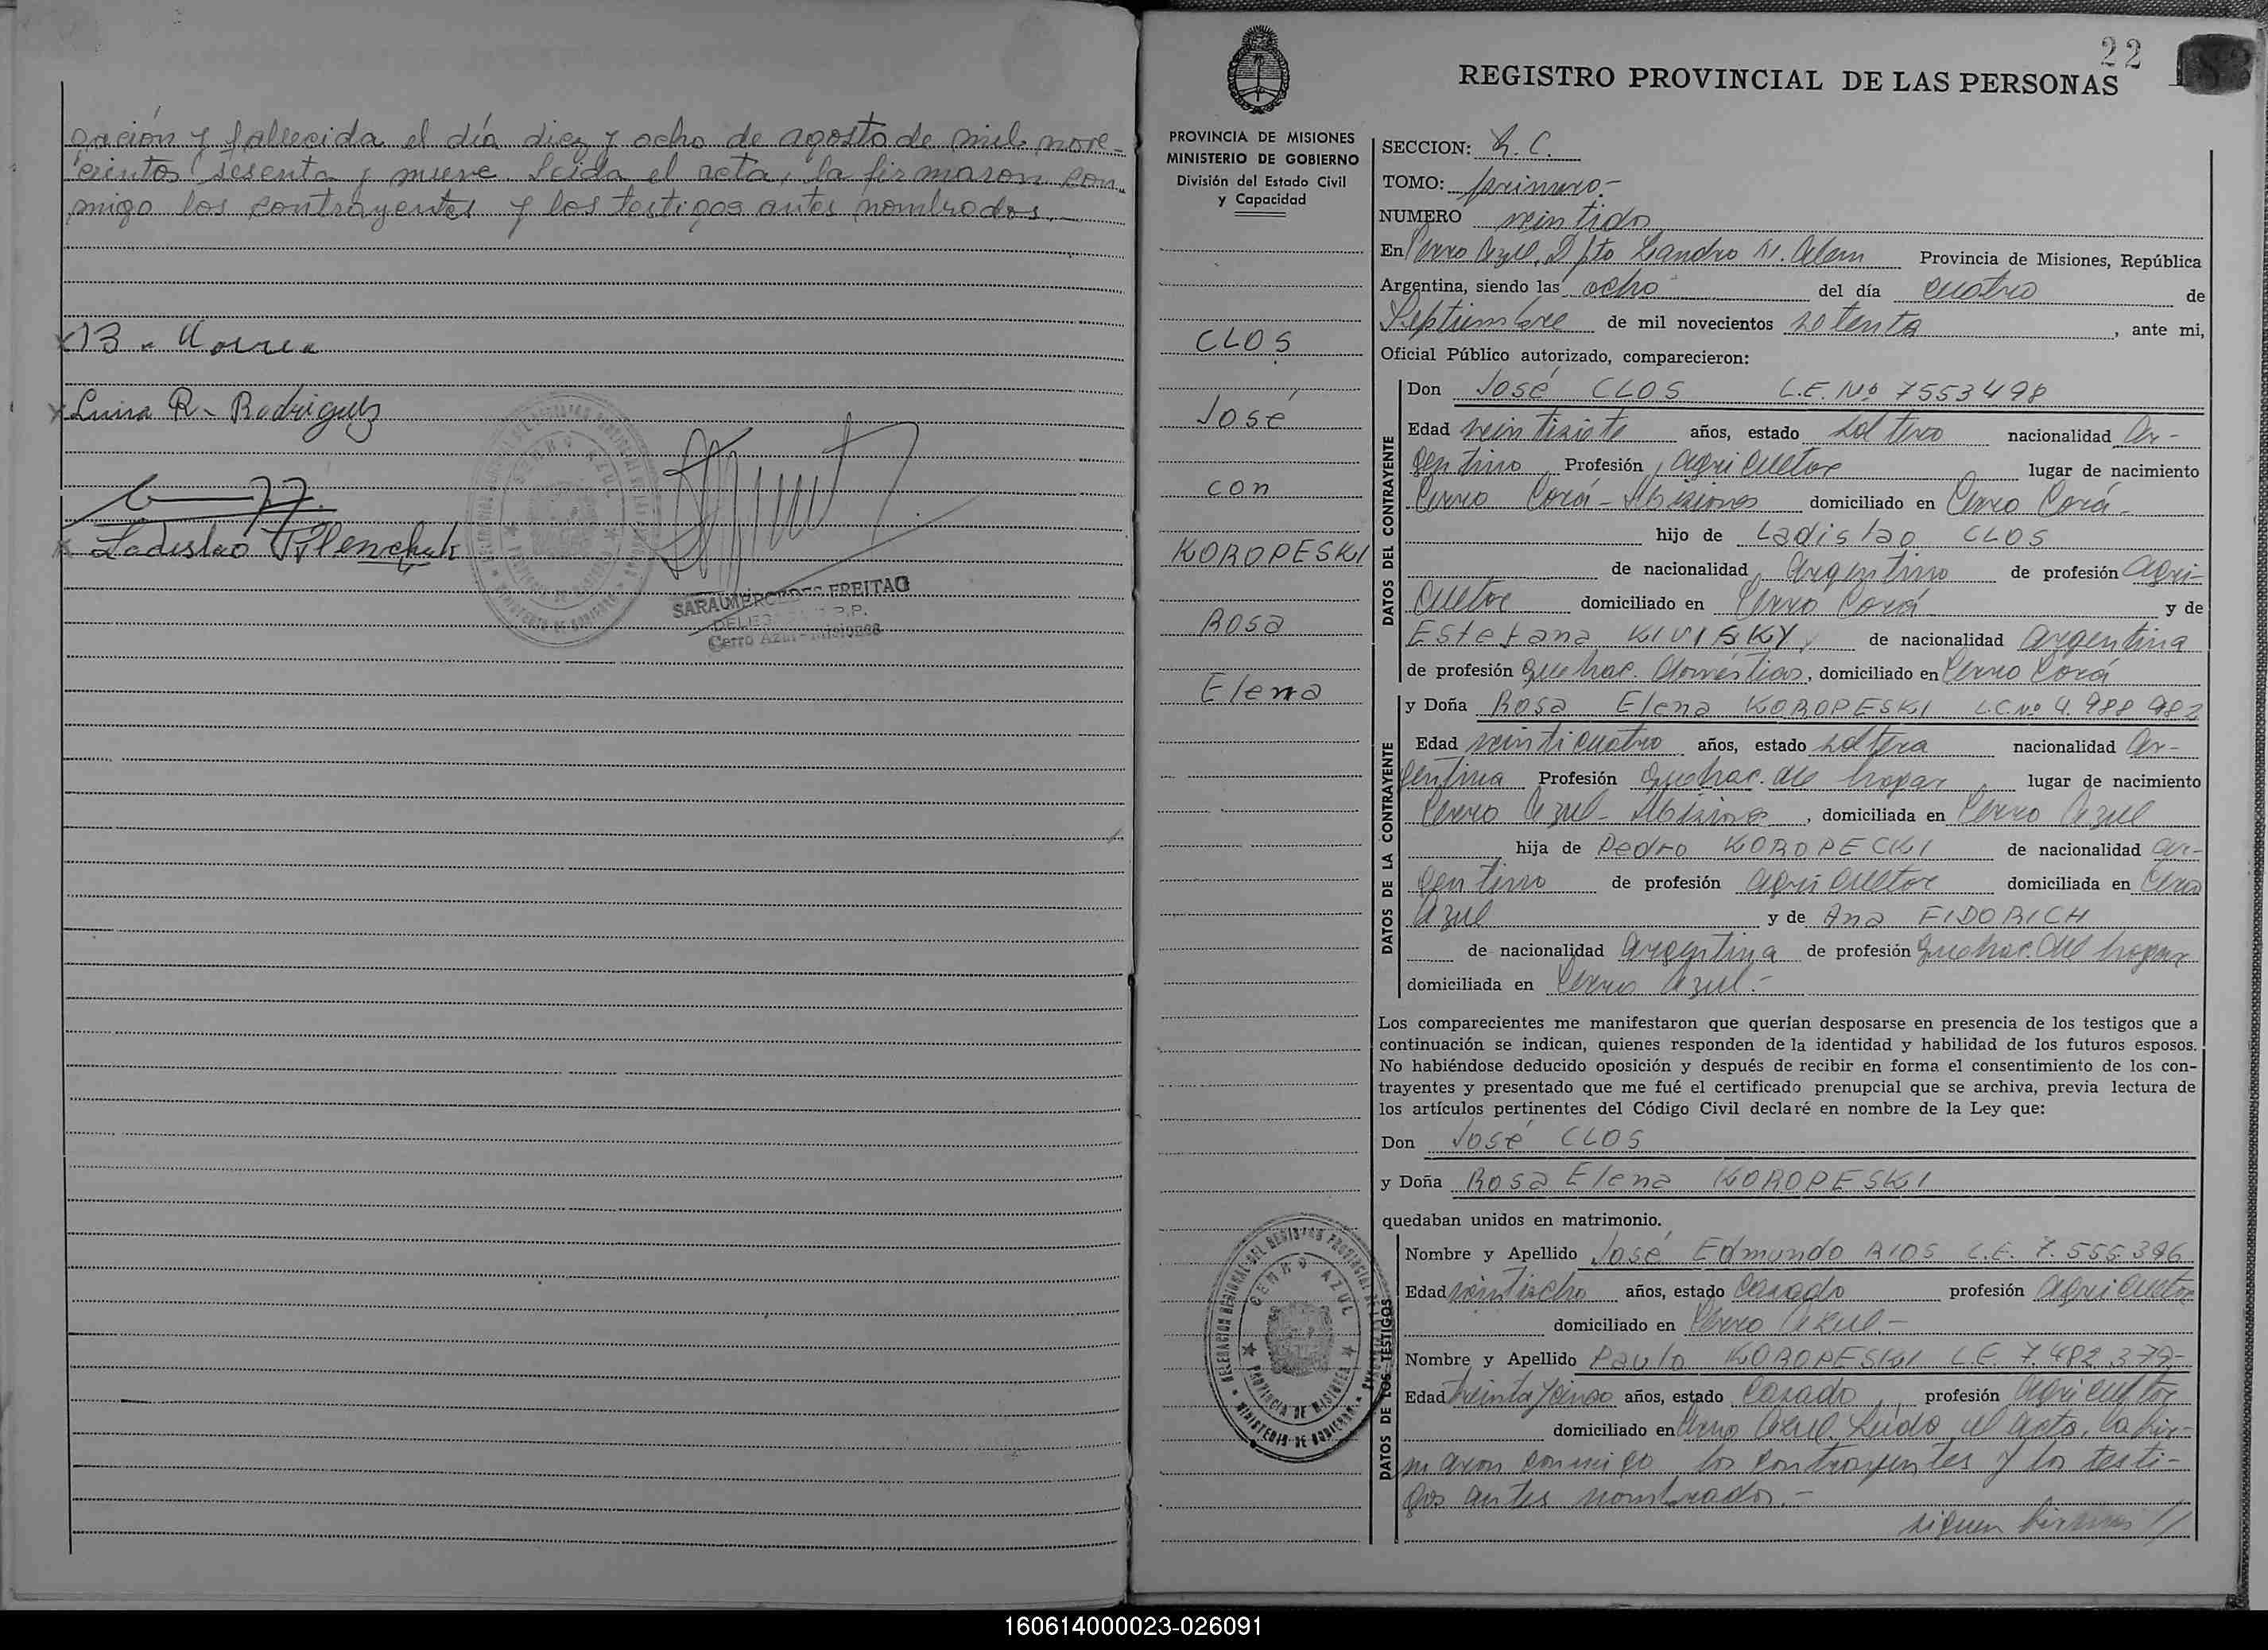 pación y fallecida el día diez y ocho de agosto de mil nove-
cientos sesenta y nueve. Leída el acta, la firmaron con-
migo los contrayentes y los testigos antes nombrados.-
Luisa R. Rodriguez
Ladislao
SARA MERCEDES FREITAG
Cerro Azul - Misiones
22
REGISTRO PROVINCIAL DE LAS PERSONAS
PROVINCIA DE MISIONES
MINISTERIO DE GOBIERNO
División del Estado Civil
y Capacidad
CLOS
José
con
KOROPESKI
Rosa
Elena
SECCION: R. C.
TOMO: primero.-
NUMERO veintidos
En Cerro Azul, Dpto Leandro N. Alem Provincia de Misiones, República
Argentina, siendo las ocho del día cuatro de
Septiembre de mil novecientos setenta, ante mi,
Oficial Público autorizado, comparecieron:
DATOS DEL CONTRAYENTE
Don José CLOS L.E. Nº 7553498
Edad veintisiete años, estado soltero nacionalidad Ar-
gentino Profesión agricultor lugar de nacimiento
Cerro Corá - Misiones domiciliado en Cerro Corá-
hijo de Ladislao CLOS
de nacionalidad Argentino de profesión Agri-
cultor domiciliado en Cerro Corá y de
Estefana KIVISKY, de nacionalidad argentina
de profesión quehac. domésticos, domiciliado en Cerro Corá
DATOS DE LA CONTRAYENTE
y Doña Rosa Elena KOROPESKI L.C. Nº 4.988 982
Edad veinticuatro años, estado soltera nacionalidad Ar-
gentina Profesión quehac. del hogar lugar de nacimiento
Cerro Azul - Misiones, domiciliada en Cerro Azul
hija de Pedro KOROPECKI de nacionalidad ar-
gentino de profesión agricultor domiciliada en Cerro
Azul y de Ana FIDORICH
de nacionalidad argentina de profesión quehac. del hogar
domiciliada en Cerro Azul.-
Los comparecientes me manifestaron que querían desposarse en presencia de los testigos que a
continuación se indican, quienes responden de la identidad y habilidad de los futuros esposos.
No habiéndose deducido oposición y después de recibir en forma el consentimiento de los con-
trayentes y presentado que me fué el certificado prenupcial que se archiva, previa lectura de
los artículos pertinentes del Código Civil declaré en nombre de la Ley que:
Don José CLOS
y Doña Rosa Elena KOROPESKI
quedaban unidos en matrimonio.
DATOS DE LOS TESTIGOS
Nombre y Apellido José Edmundo RIOS L.E. 7.555.396
Edad veintiocho años, estado casado profesión agricultor
domiciliado en Cerro Azul.-
Nombre y Apellido Paulo KOROPESKI L.E. 7.482.379-
Edad treinta y cinco años, estado casado profesión agricultor
domiciliado en Cerro Azul. Leida el acta, la fir-
maron conmigo los contrayentes y los testi-
gos antes nombrados.-
siguen firmas //
DELEGACION REGIONAL DEL REGISTRO PROVINCIAL DE LAS PERSONAS
CERRO AZUL
PROVINCIA DE MISIONES
MINISTERIO DE GOBIERNO
160614000023-026091